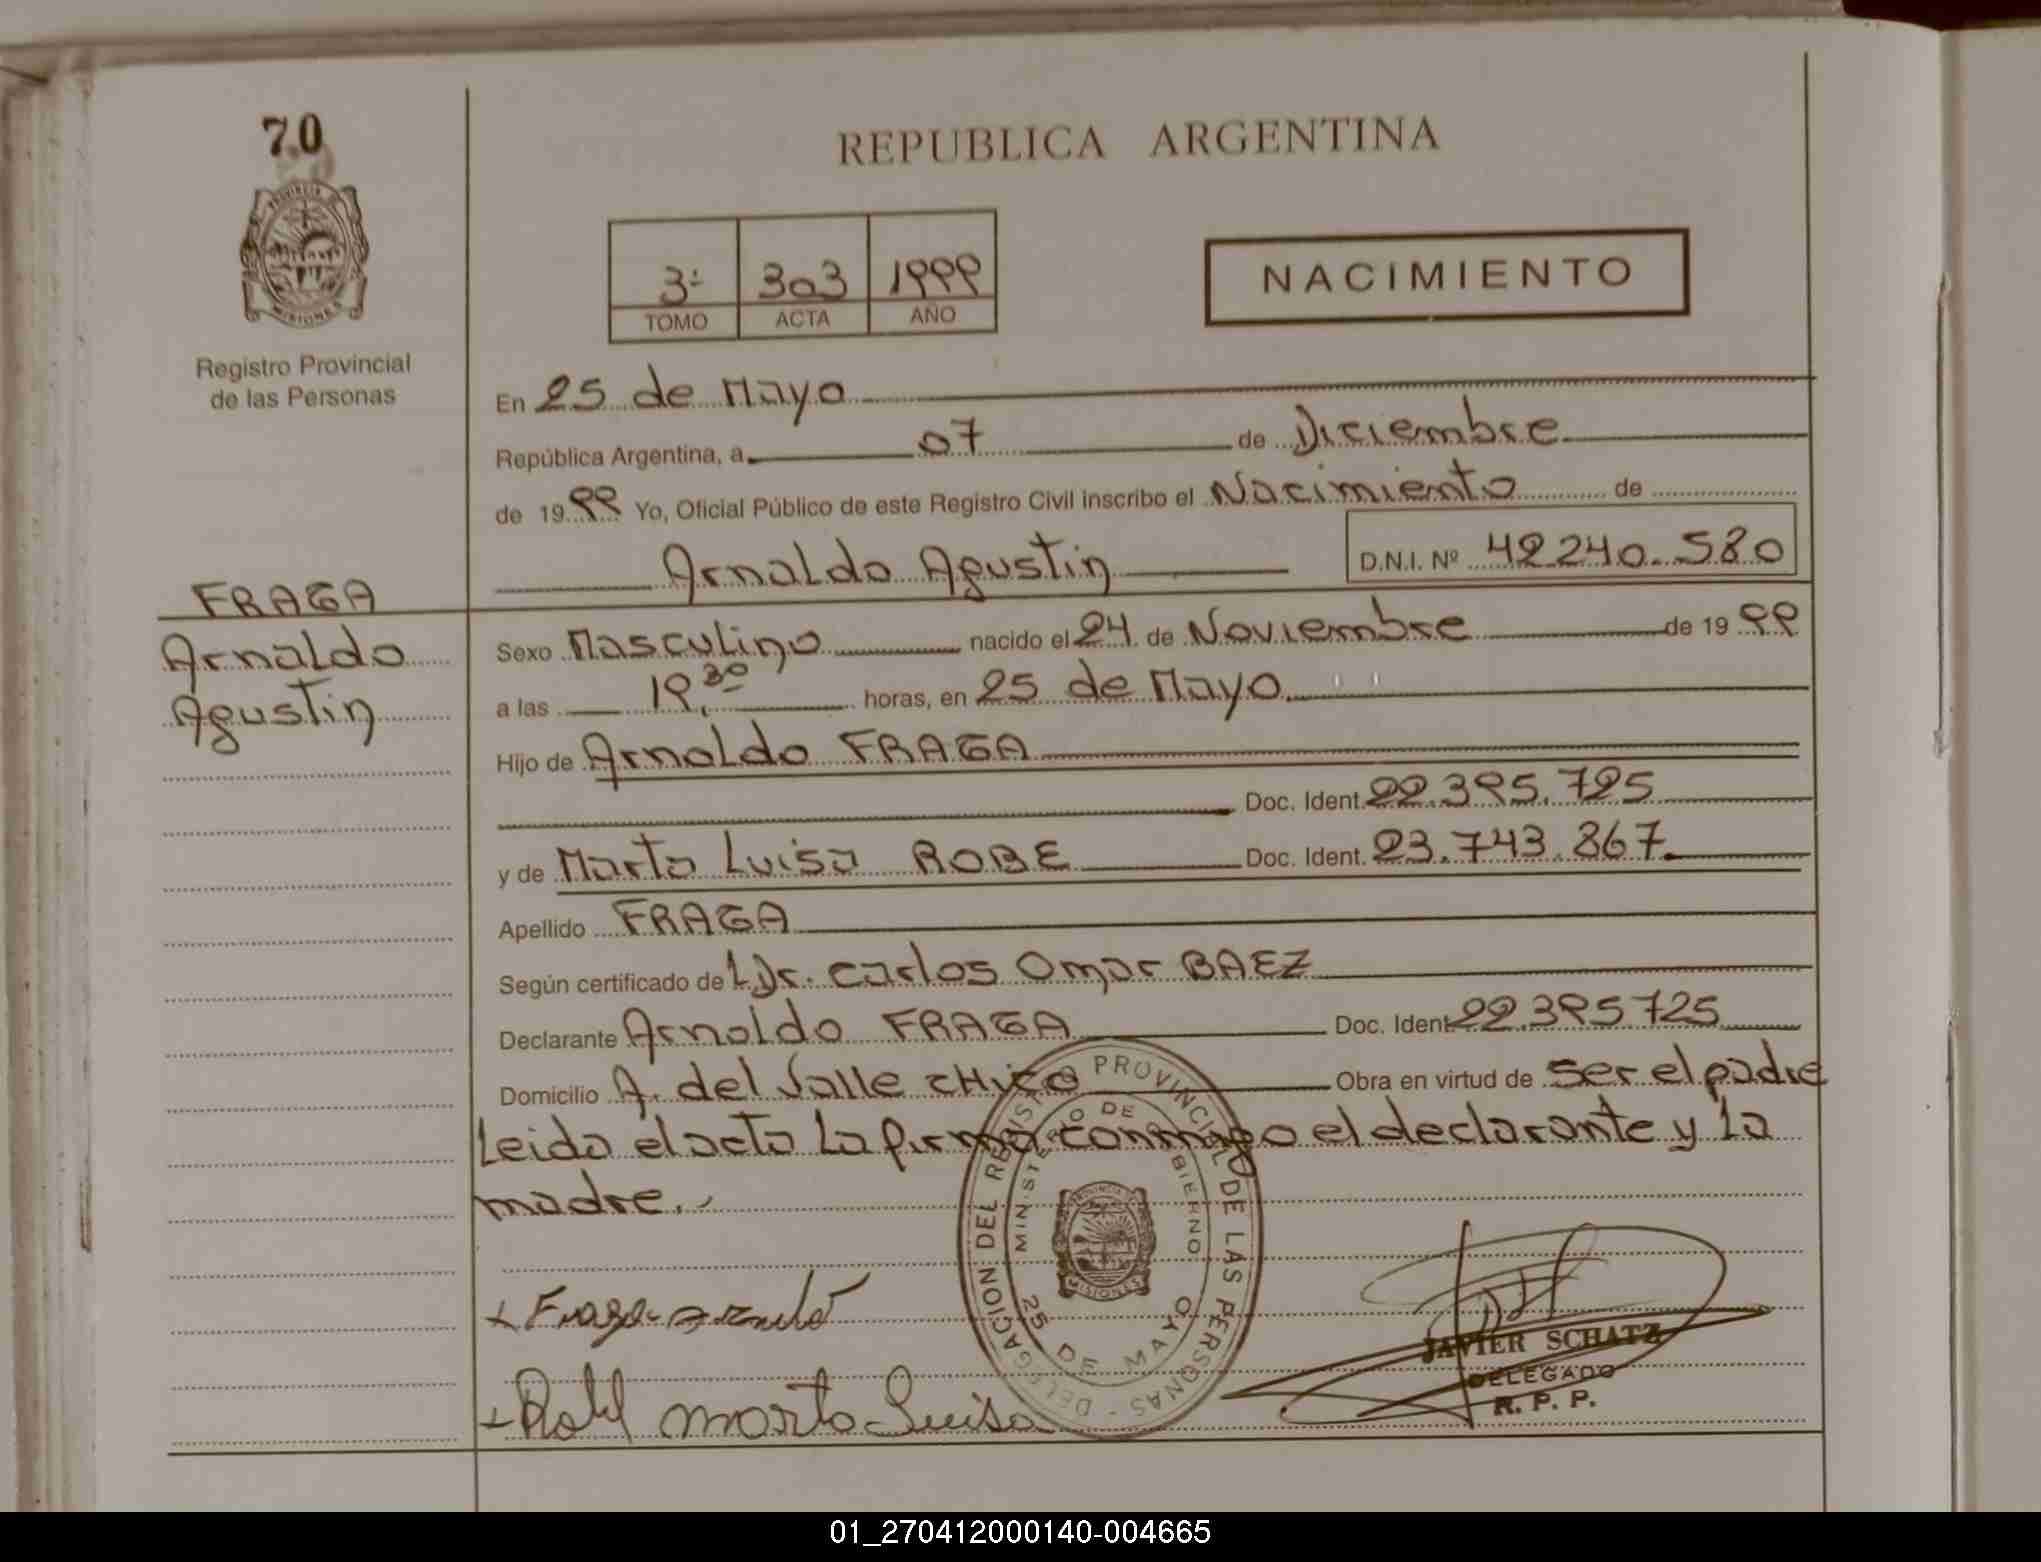 70
REPUBLICA ARGENTINA
PROVINCIA DE
MISIONES
Registro Provincial
de las Personas
3º 303 1999
TOMO ACTA AÑO
NACIMIENTO
En 25 de Mayo
República Argentina, a 07 de Diciembre
de 1999 Yo, Oficial Público de este Registro Civil inscribo el Nacimiento de
Arnaldo Agustin D.N.I. Nº 42240.580
FRAGA
Arnaldo
Agustin
Sexo Masculino nacido el 24 de Noviembre de 1999
a las 19,30 horas, en 25 de Mayo
Hijo de Arnaldo FRAGA
Doc. Ident. 22.395.725
y de Marta Luisa ROBE Doc. Ident. 23.743.867.
Apellido FRAGA
Según certificado de Dr. Carlos Omar BAEZ
Declarante Arnoldo FRAGA Doc. Ident. 22.395725
Domicilio A. del Valle CHico Obra en virtud de ser el padre
Leida el acta La firma conmigo el declarante y La
madre.-
DELEGACION DEL REGISTRO PROVINCIAL DE LAS PERSONAS
MINISTERIO DE GOBIERNO
PROVINCIA DE
MISIONES
25 DE MAYO
Fraga
marta Luisa
JAVIER SCHATZ
DELEGADO
R. P. P.
01_270412000140-004665